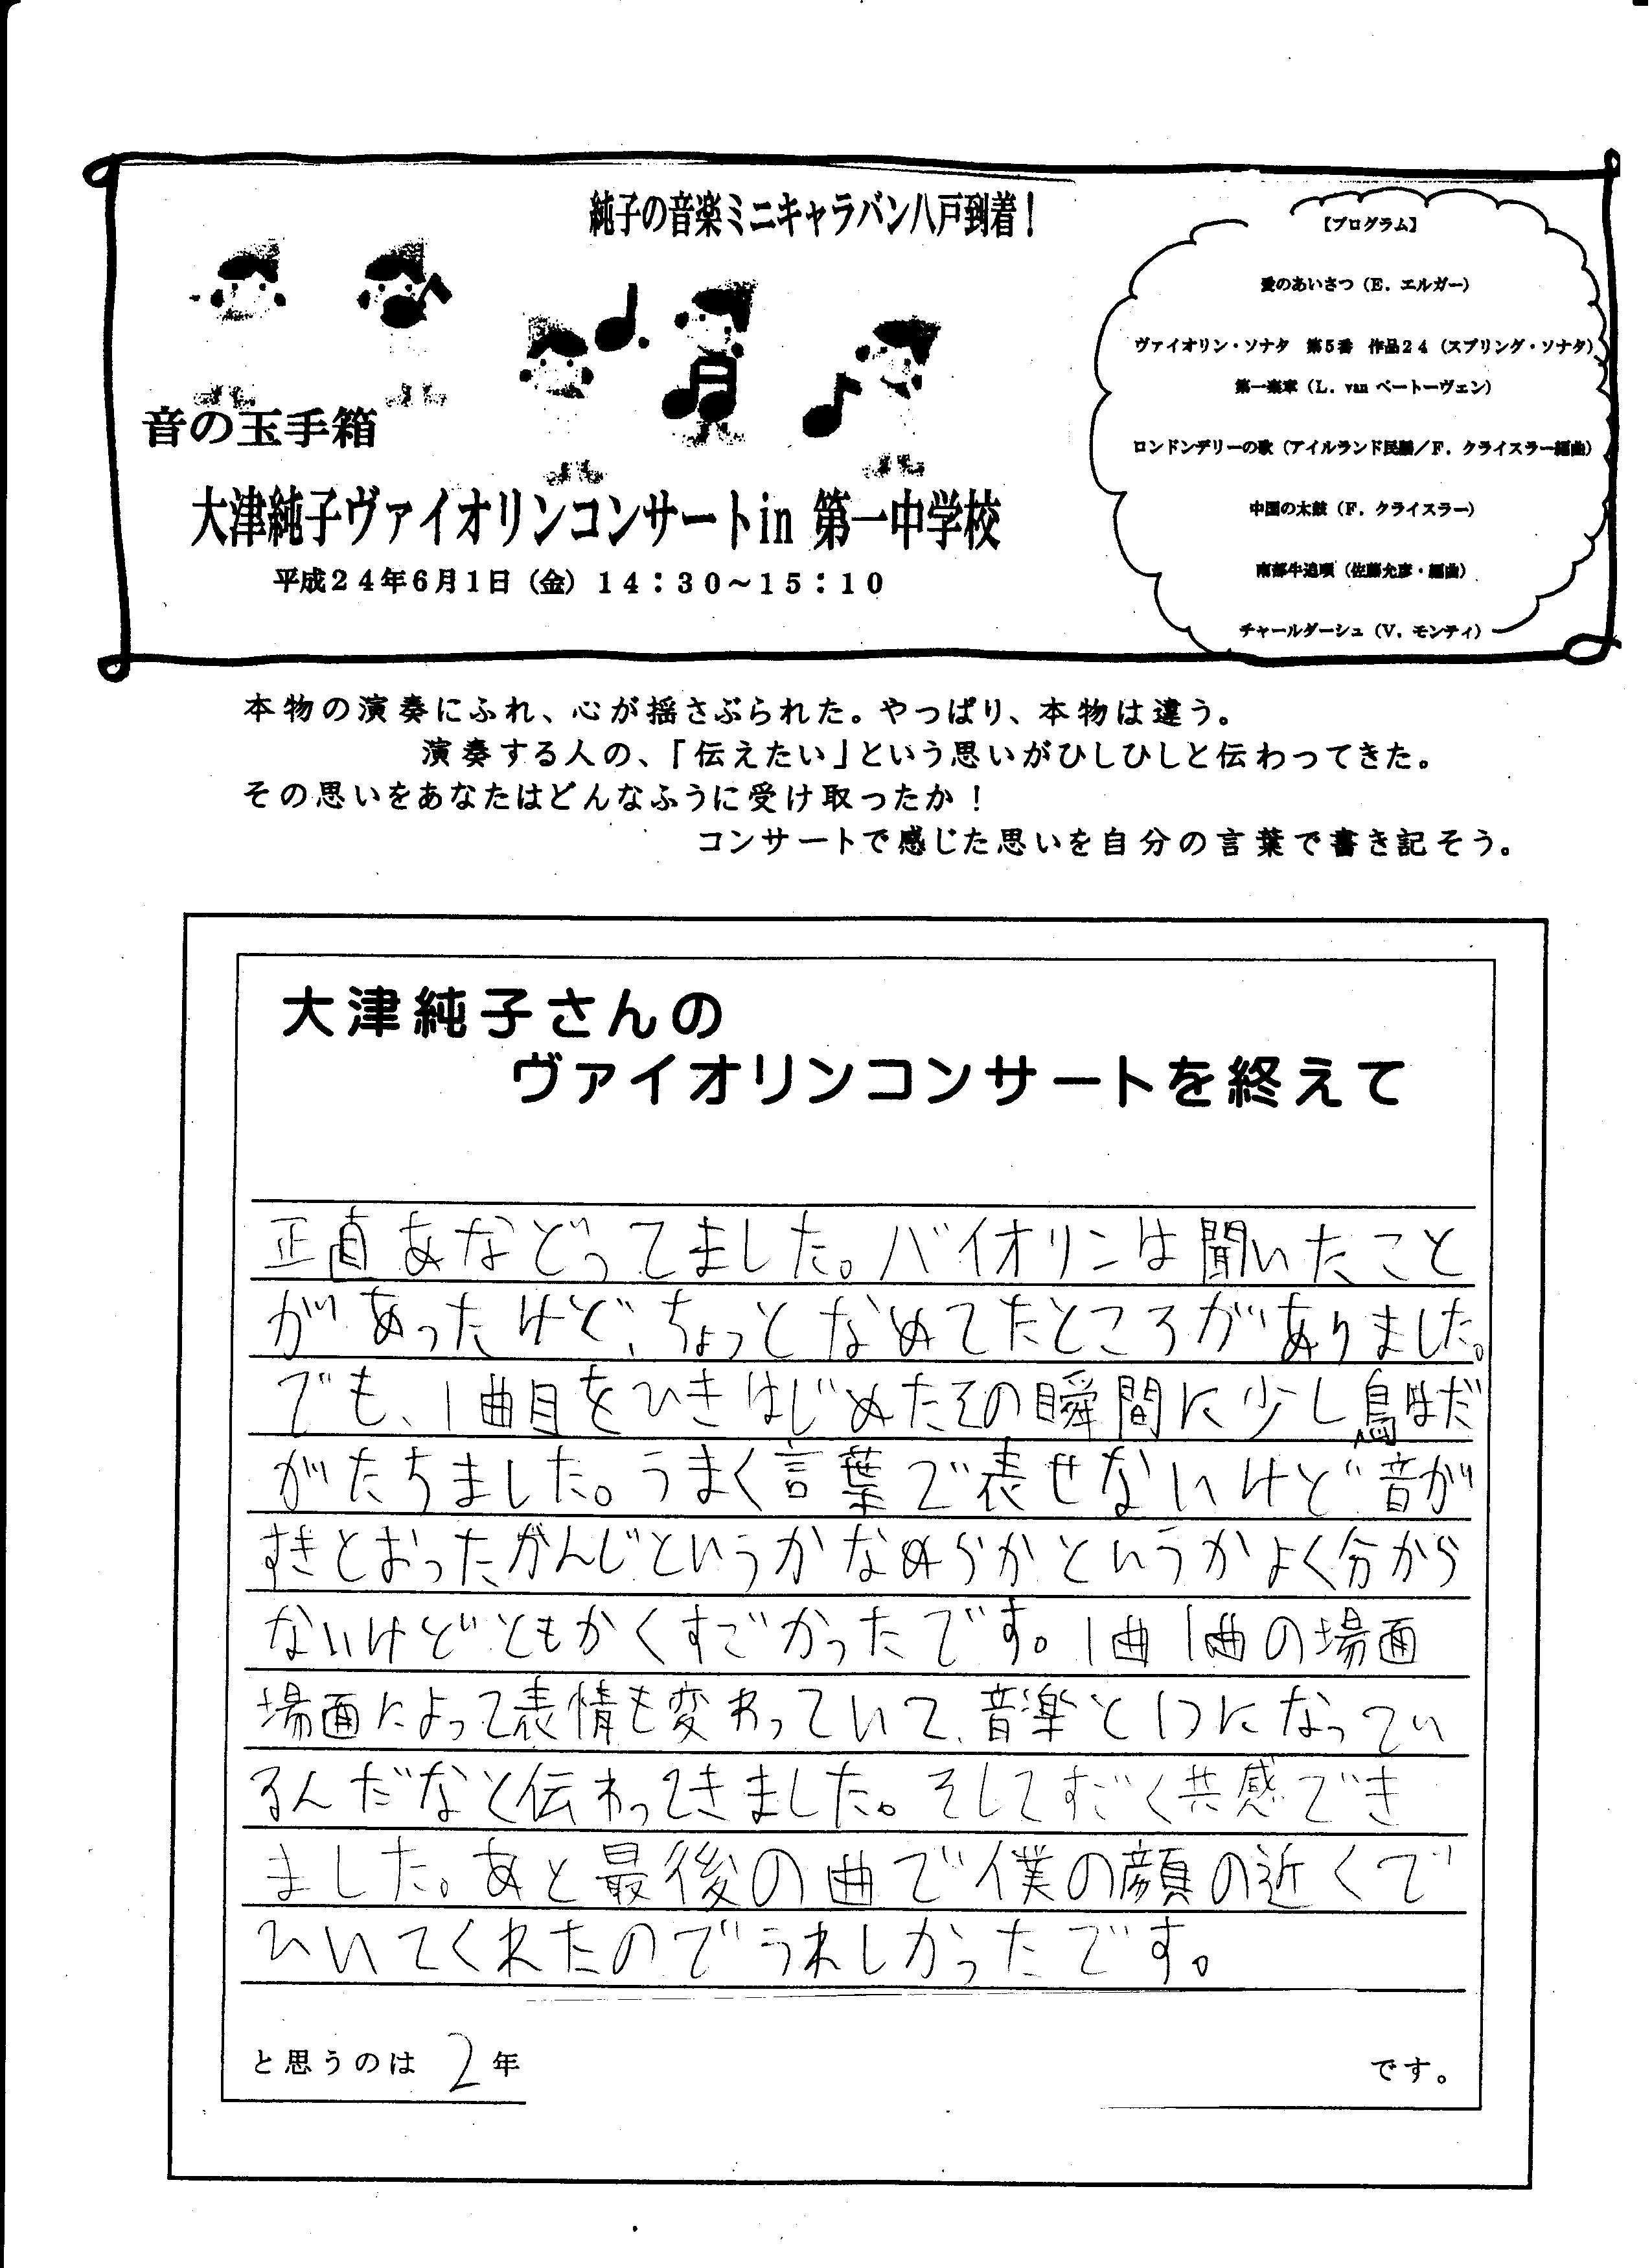 純子の音楽ミニキャラバン八戸到着！
音の玉手箱
大津純子ヴァイオリンコンサートin 第一中学校
平成２４年６月１日（金）１４：３０～１５：１０
【プログラム】
愛のあいさつ（E．エルガー）
ヴァイオリン・ソナタ　第５番　作品２４（スプリング・ソナタ）
第一楽章（L．van ベートーヴェン）
ロンドンデリーの歌（アイルランド民謡／F．クライスラー編曲）
中国の太鼓（F．クライスラー）
南部牛追唄（佐藤允彦・編曲）
チャールダーシュ（V．モンティ）
本物の演奏にふれ、心が揺さぶられた。やっぱり、本物は違う。
演奏する人の、「伝えたい」という思いがひしひしと伝わってきた。
その思いをあなたはどんなふうに受け取ったか！
コンサートで感じた思いを自分の言葉で書き記そう。
大津純子さんの
ヴァイオリンコンサートを終えて
正直あなどってました。バイオリンは聞いたこと
があったけど、ちょっとなめてたところがありました。
でも、1曲目をひきはじめたその瞬間に少し鳥はだ
がたちました。うまく言葉で表せないけど音が
すきとおったかんじというかなめらかというかよく分から
ないけどともかくすごかったです。1曲1曲の場面
場面によって表情も変わっていて、音楽と1つになってい
るんだなと伝わってきました。そしてすごく共感でき
ました。あと最後の曲で僕の顔の近くで
ひいてくれたのでうれしかったです。
と思うのは 2 年 です。